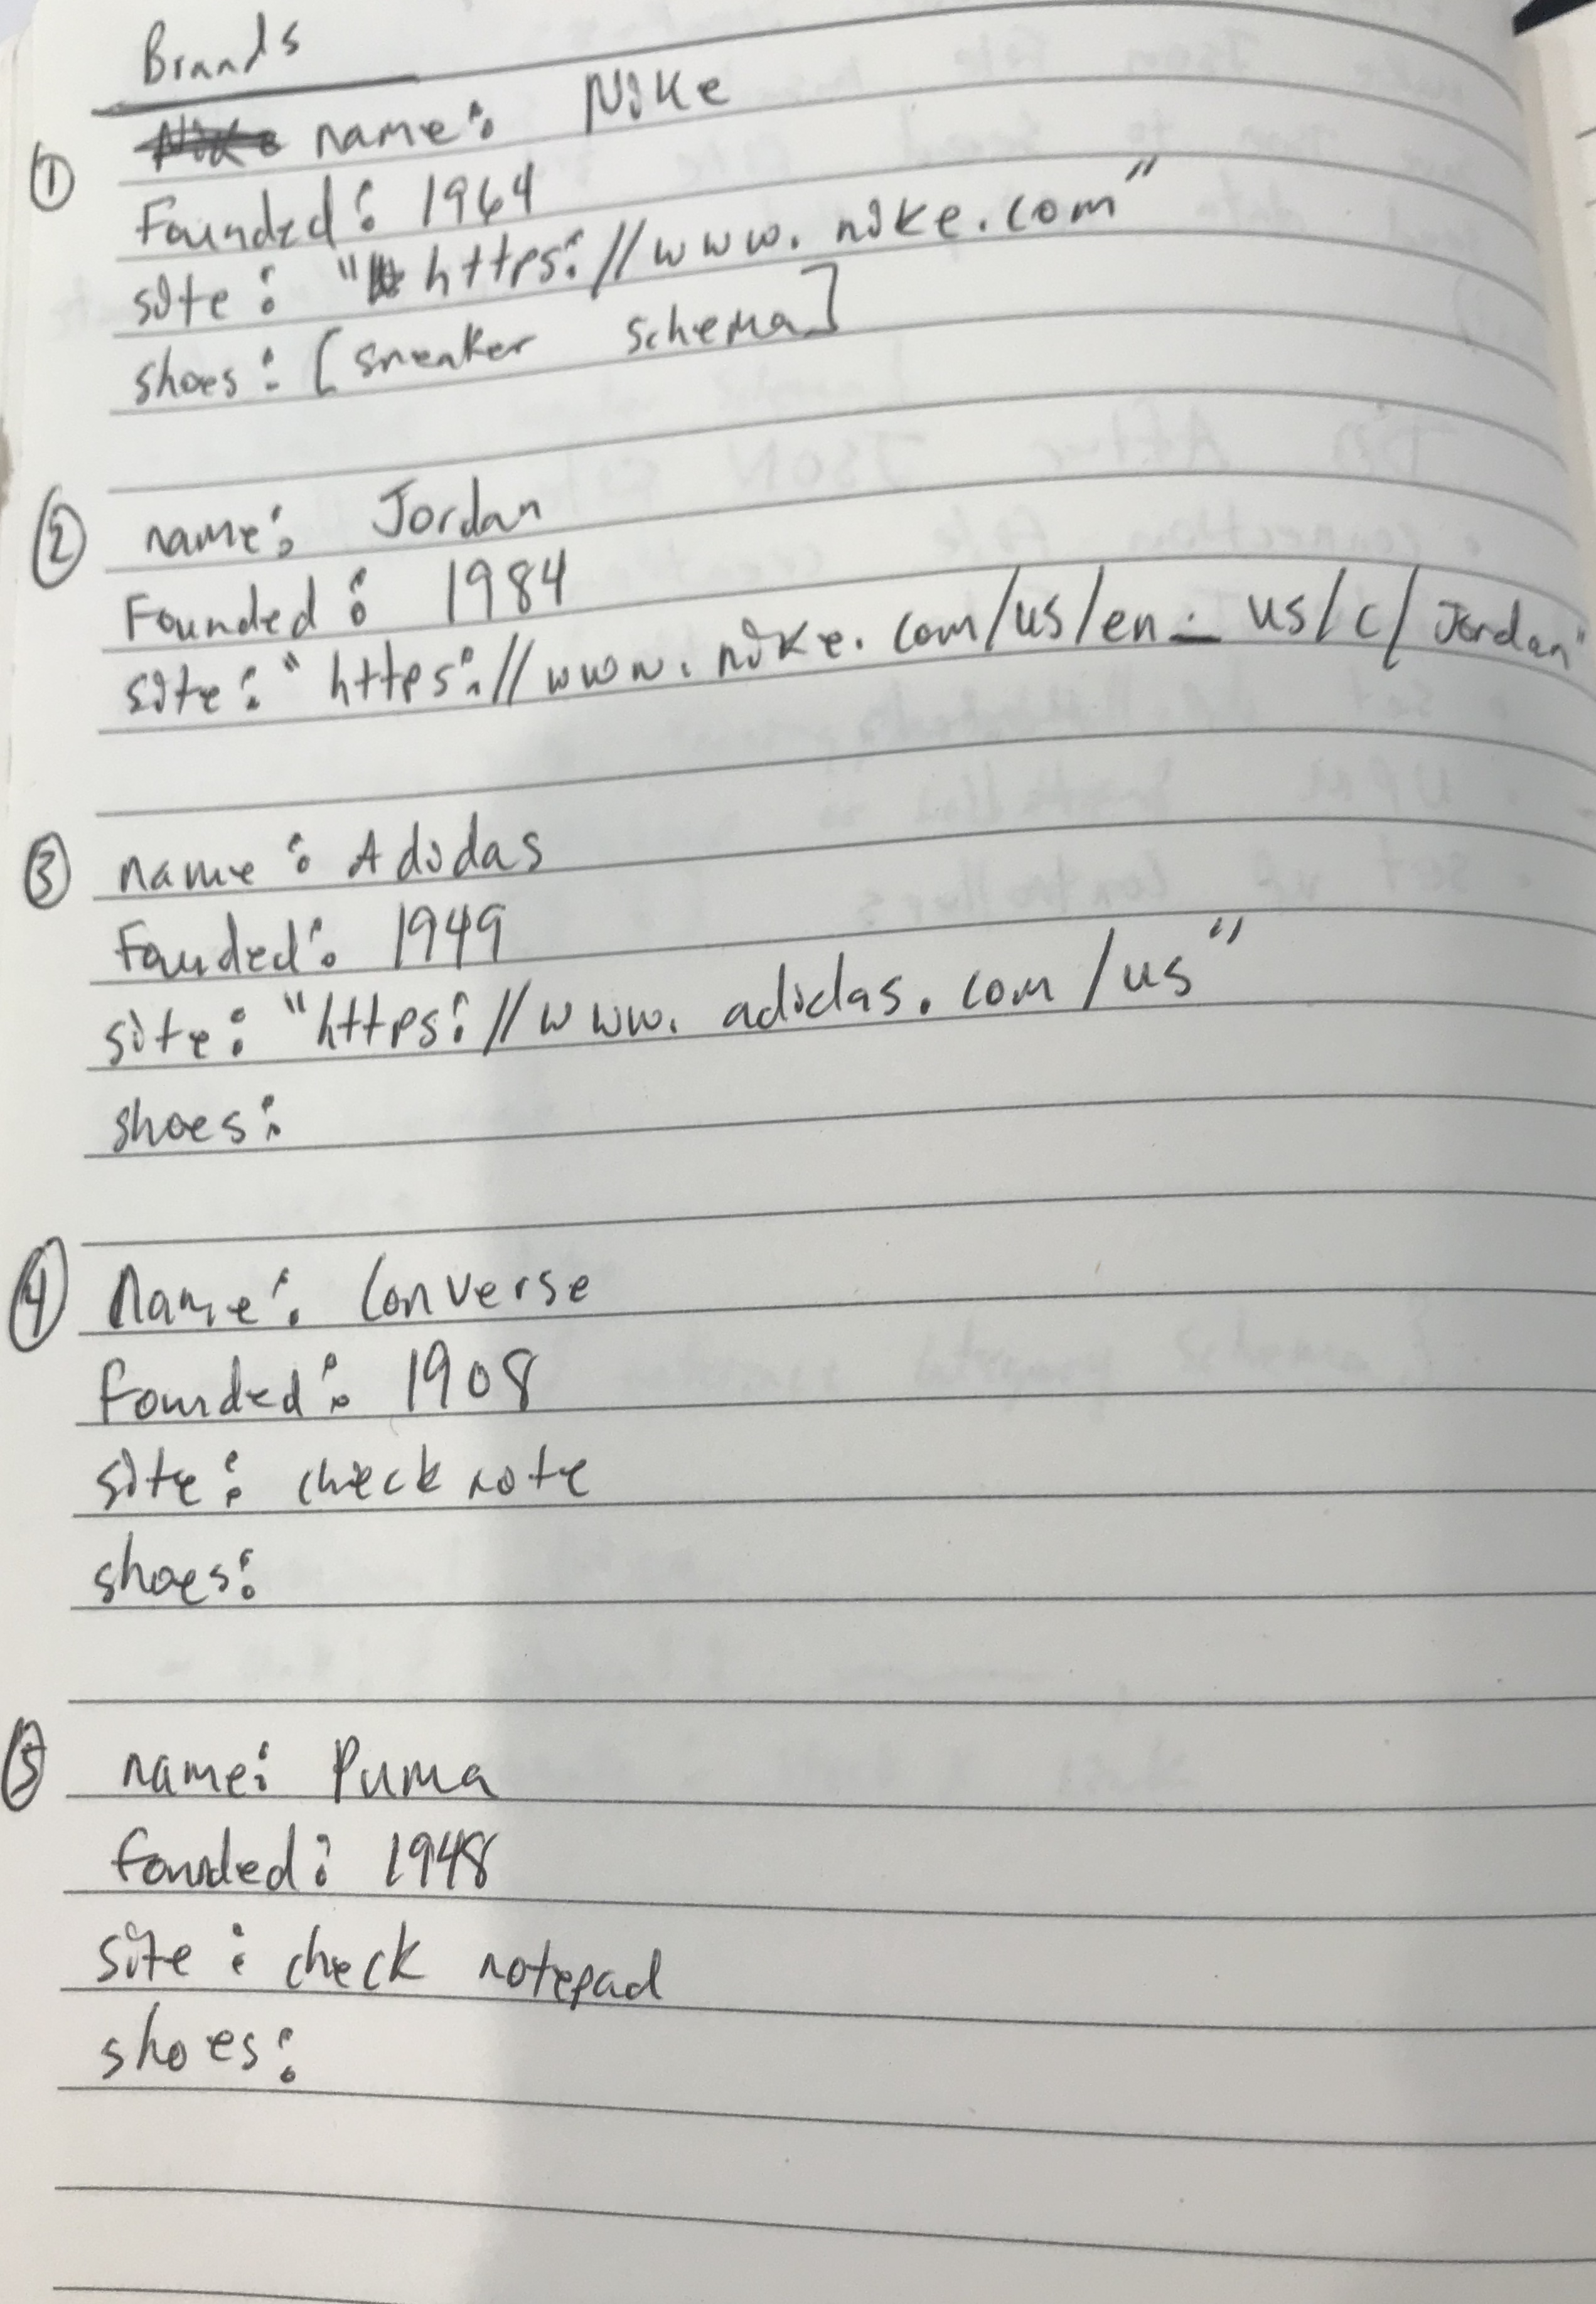 Brands
① name: Nike
Founded: 1964
site: "https://www.nike.com"
shoes: [sneaker schema]
② name: Jordan
Founded: 1984
site: "https://www.nike.com/us/en_us/c/Jordan"
③ name: Adidas
Founded: 1949
site: "https://www.adidas.com/us"
shoes:
④ Name: Converse
founded: 1908
site: check note
shoes:
⑤ name: Puma
founded: 1948
site: check notepad
shoes: